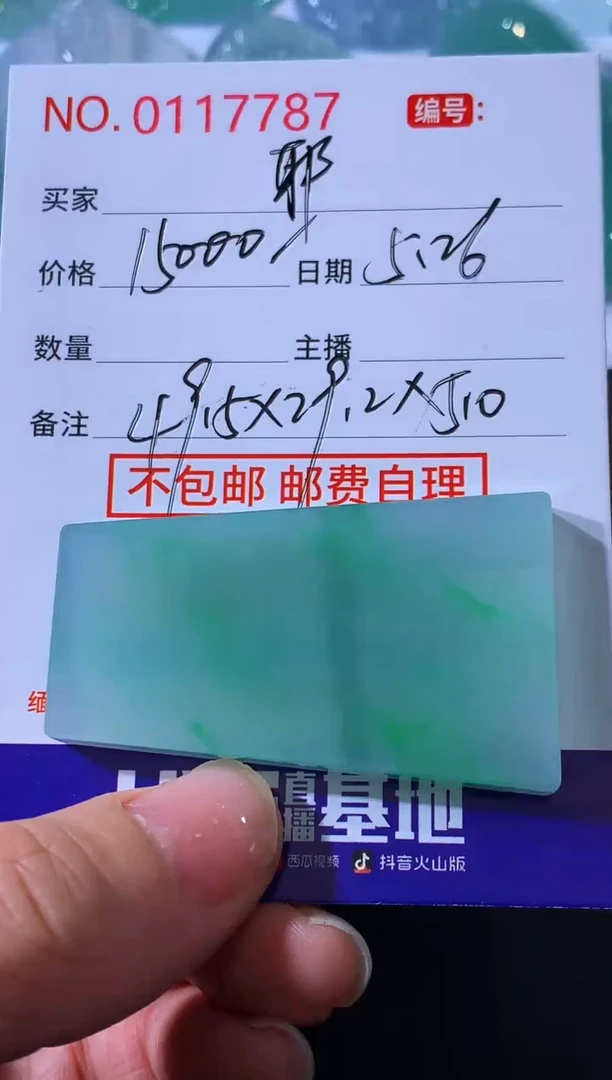 NO. 0117787 编号:
买家 耶
价格 15000 日期 5.26
数量 主播
备注 49.5×29.2×5.10
不包邮 邮费自理
缅
直播基地
西瓜视频 抖音火山版